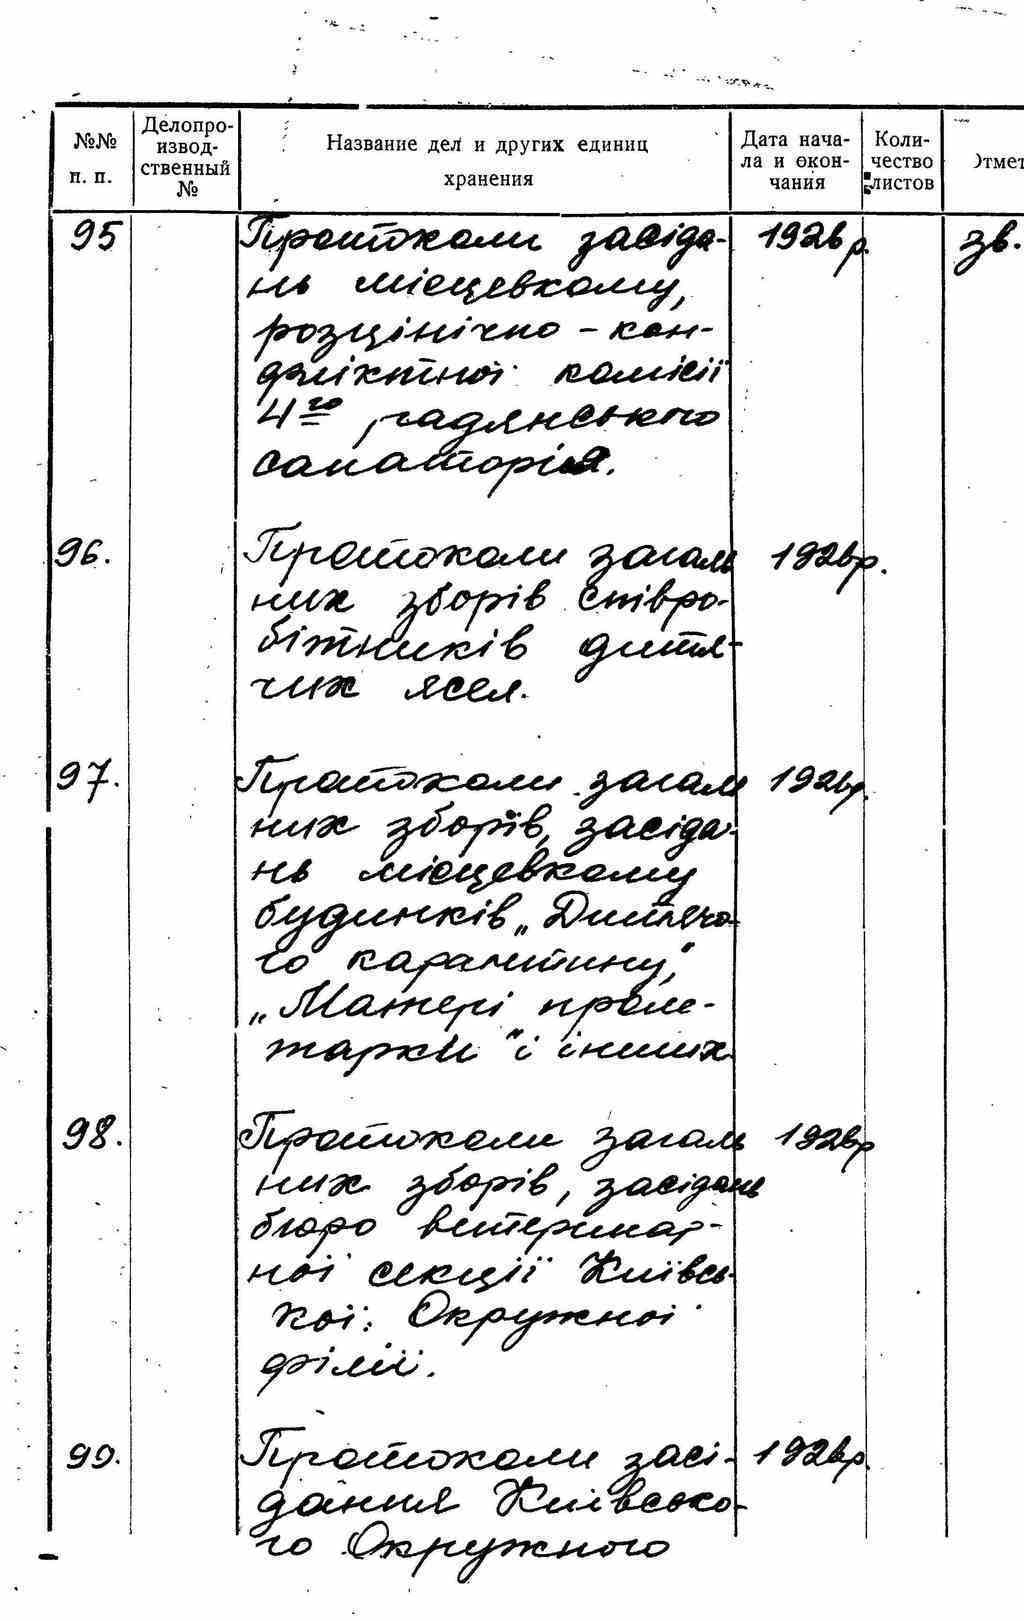 №№ п. п.
Делопро-
извод-
ственный
№
Название дел и других единиц
хранения
Дата нача-
ла и окон-
чания
Коли-
чество
листов
Отмет
95 Протоколи засіда- 1926 р. зв.
нь місцевкому,
розцінічно - кон-
фліктної комісії
4го радянського
санаторія.
96. Протоколи загаль 1926р.
них зборів співро-
бітників дитя-
чих ясел.
97. Протоколи загаль 1926р.
них зборів, засіда-
нь місцевкому
будинків „Дитячо-
го карантину,"
„Матері проле-
тарки" і інших
98. Протоколи загаль 1926р
них зборів, засідань
бюро ветеринар-
ної секції Київсь-
кої Окружної
філії.
99. Протоколи засі- 1926р.
дання Київсько-
го Окружного